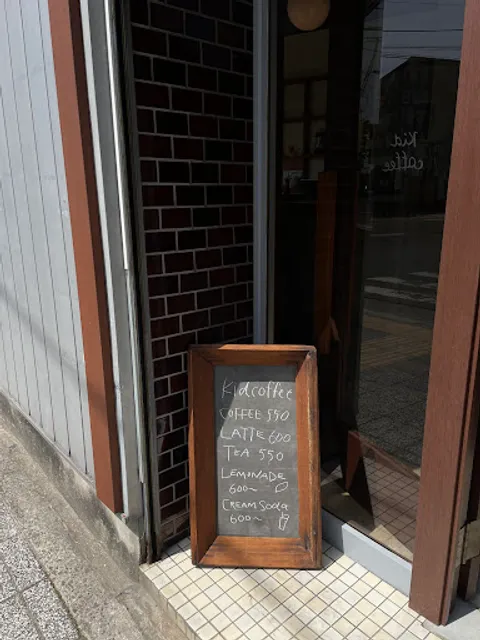 Kid
coffee
Kidcoffee
COFFEE 550
LATTE 600
TEA 550
LEMONADE
600~
CREAM SODA
600~